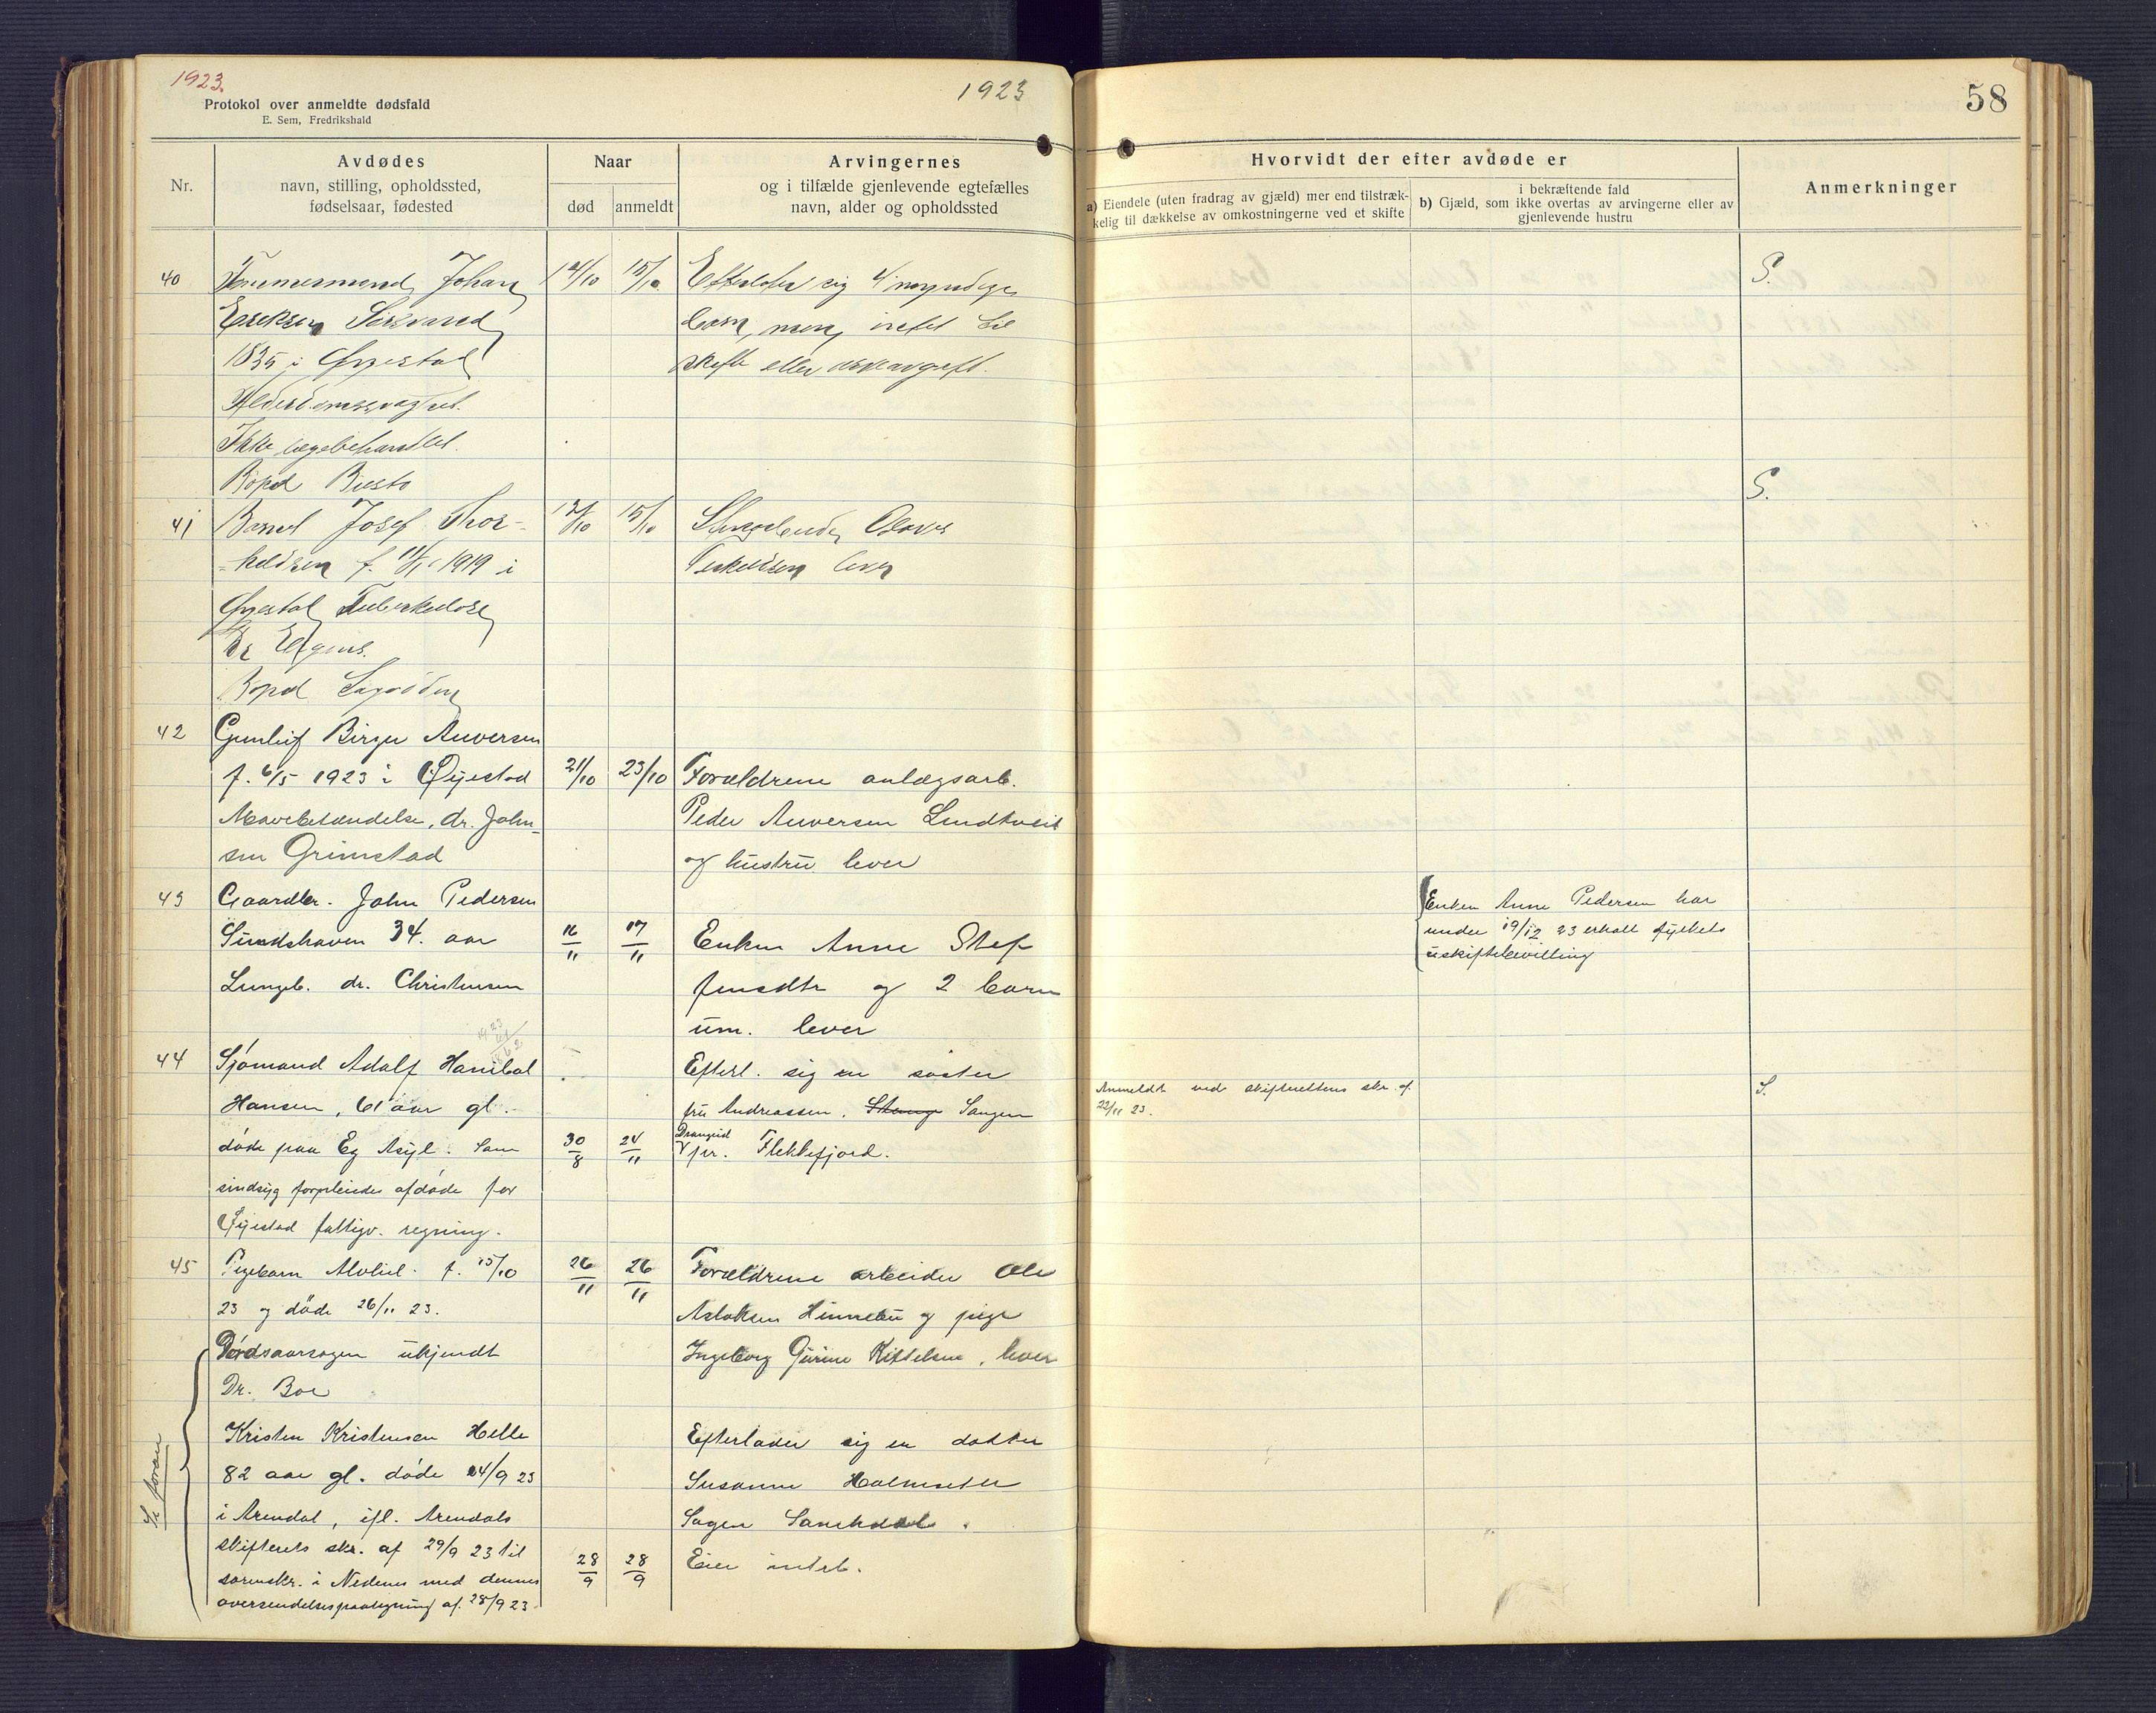 1923.
1923
58
Protokol over anmeldte dødsfald
E. Sem, Fredrikshald
Nr.
Avdødes
navn, stilling, opholdssted,
fødselsaar, fødested
Naar
død
anmeldt
Arvingernes
og i tilfælde gjenlevende egtefælles
navn, alder og opholdssted
Hvorvidt der efter avdøde er
a) Eiendele (uten fradrag av gjæld) mer end tilstræk-
kelig til dækkelse av omkostningerne ved et skifte
i bekræftende fald
b) Gjæld, som ikke overtas av arvingerne eller av
gjenlevende hustru
Anmerkninger
40
Tømmermand Johan
Eriksen
1835 i Øyestad
Alderdomssvaghet.
Ikke lægebehandlet.
Bopæl
14/10
15/10
Efterlater sig 4 myndige
barn, men intet til
skifte eller arveavgift.
S.
41
Barnet Josef Thor-
keldsen f. 11/1 1919 i
Øyestad Tuberkulose
Dr
Bopæl
15/10
Terkeldsen lever
S.
42
Gunleif Birger Auversen
f. 6/5 1923 i Øyestad
Mavebetændelse, dr. John-
sen Grimstad
21/10
23/10
Forældrene anlægsarb.
Peder Auversen Lindtveit
og hustru lever
43
Gaardbr. John Pedersen
34. aar
Lungeb. dr. Christensen
16/11
17/11
Enken Anne Stef
fensdtr og 2 barn
um. lever
Enken Anne Pedersen har
under 19/12 23 erholt fylkets
uskiftebevilling
44
Sjømand Adolf Hanibal
Hansen, 61 aar gl.
døde paa Eg Asyl. Som
sindsyg forpleiedes afdøde for
Øyestad fattigv. regning.
30/8
24/11
Efterl. sig en søster
fru Andreassen,
pr. Flekkefjord.
Anmeldt ved skifterettens skr. af
22/11 23.
S.
45
Pigebarn Alvhil. f. 15/10
23 og døde 26/11 23.
Dødsaarsagen ukjendt
Dr. Boe
26/11
26/11
Forældrene arbeider Ole
Aslaksen Hinnebu og pige
Ingeborg Gurine Kittelsen, lever
Se foran
Kristen Kristensen Helle
82 aar gl. døde 24/9 23
i Arendal, ifl. Arendals
skifterets skr. af 29/9 23 til
sorenskr. i Nedenes med dennes
oversendelsespaategning af. 28/9 23
28/9
28/9
Efterlader sig en datter
Susanne
Eier intet.